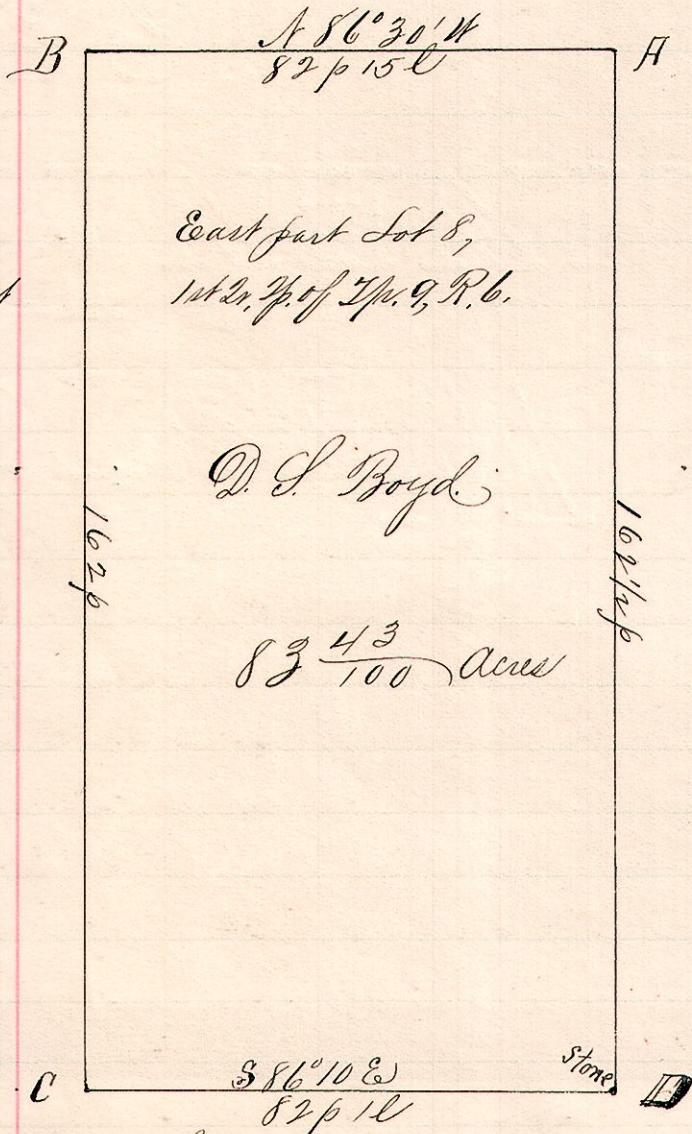 N 86° 30' W
B
A
82 p 15 l
East part Lot 8,
1st Qr. Tp. of Tp. 9, R. 6.
D. S. Boyd.
162 p
162 1/2 p
83 43/100 Acres
Stone
C
S 86° 10 E
D
82 p 1 l